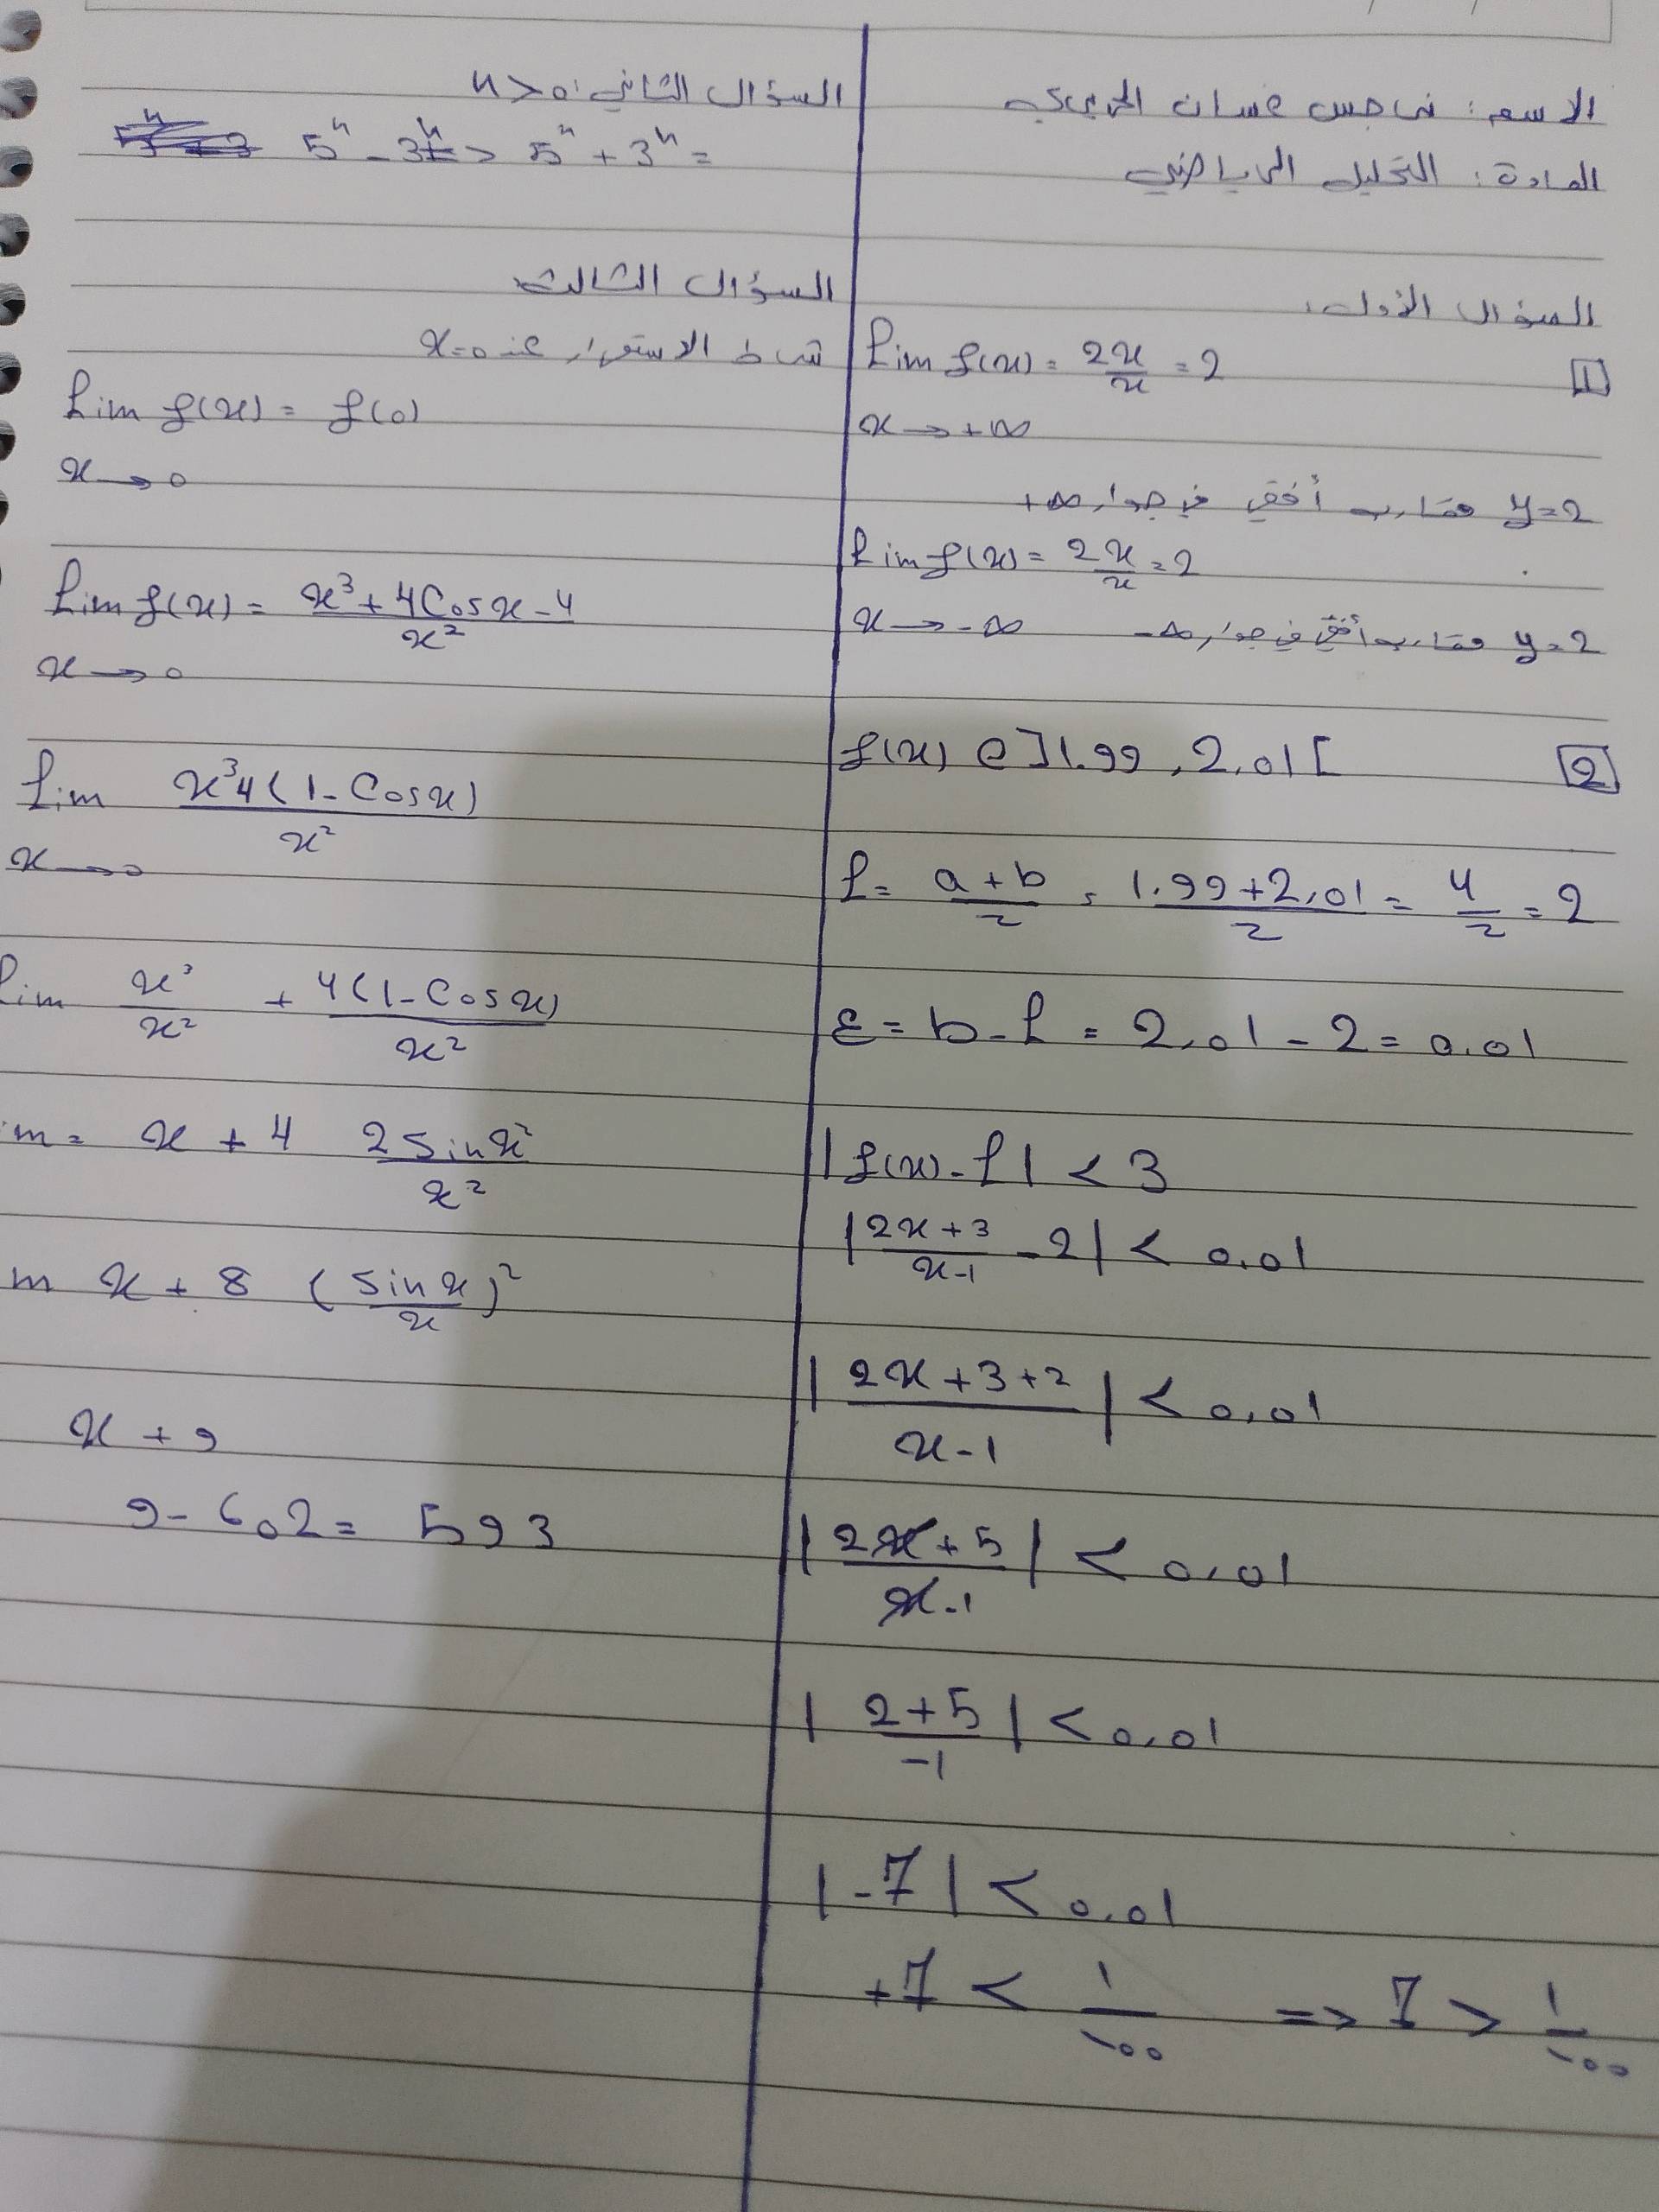 الاسم: نرجس غسان الحريري
المادة: التحليل الرياضي
السؤال الأول:
[1] Lim f(x) = 2x/x = 2
x → +∞
y=2 مقارب أفقي في جوار +∞
Lim f(x) = 2x/x = 2
x → -∞ y=2 مقارب أفقي في جوار -∞
[2] f(x) ∈ ]1.99 , 2.01[
L = a+b/2 = 1.99+2.01/2 = 4/2 = 2
ε = b - L = 2.01 - 2 = 0.01
|f(x) - L| < 3
|2x+3/x-1 - 2| < 0.01
|2x+3+2/x-1| < 0.01
|2x+5/x-1| < 0.01
|2+5/-1| < 0.01
|-7| < 0.01
+7 < 1/100 => 7 > 1/100
السؤال الثاني: n>0
5ⁿ - 3ⁿ > 5ⁿ + 3ⁿ =
السؤال الثالث
شرط الاستمرار عند x=0
Lim f(x) = f(0)
x → 0
Lim f(x) = x³+4Cosx-4/x²
x → 0
Lim x³4(1-Cosx)/x²
x → 0
Lim x³/x² + 4(1-Cosx)/x²
m = x + 4 2Sinx²/x²
m x + 8 (Sinx/x)²
x + 9
9 - 602 = 593